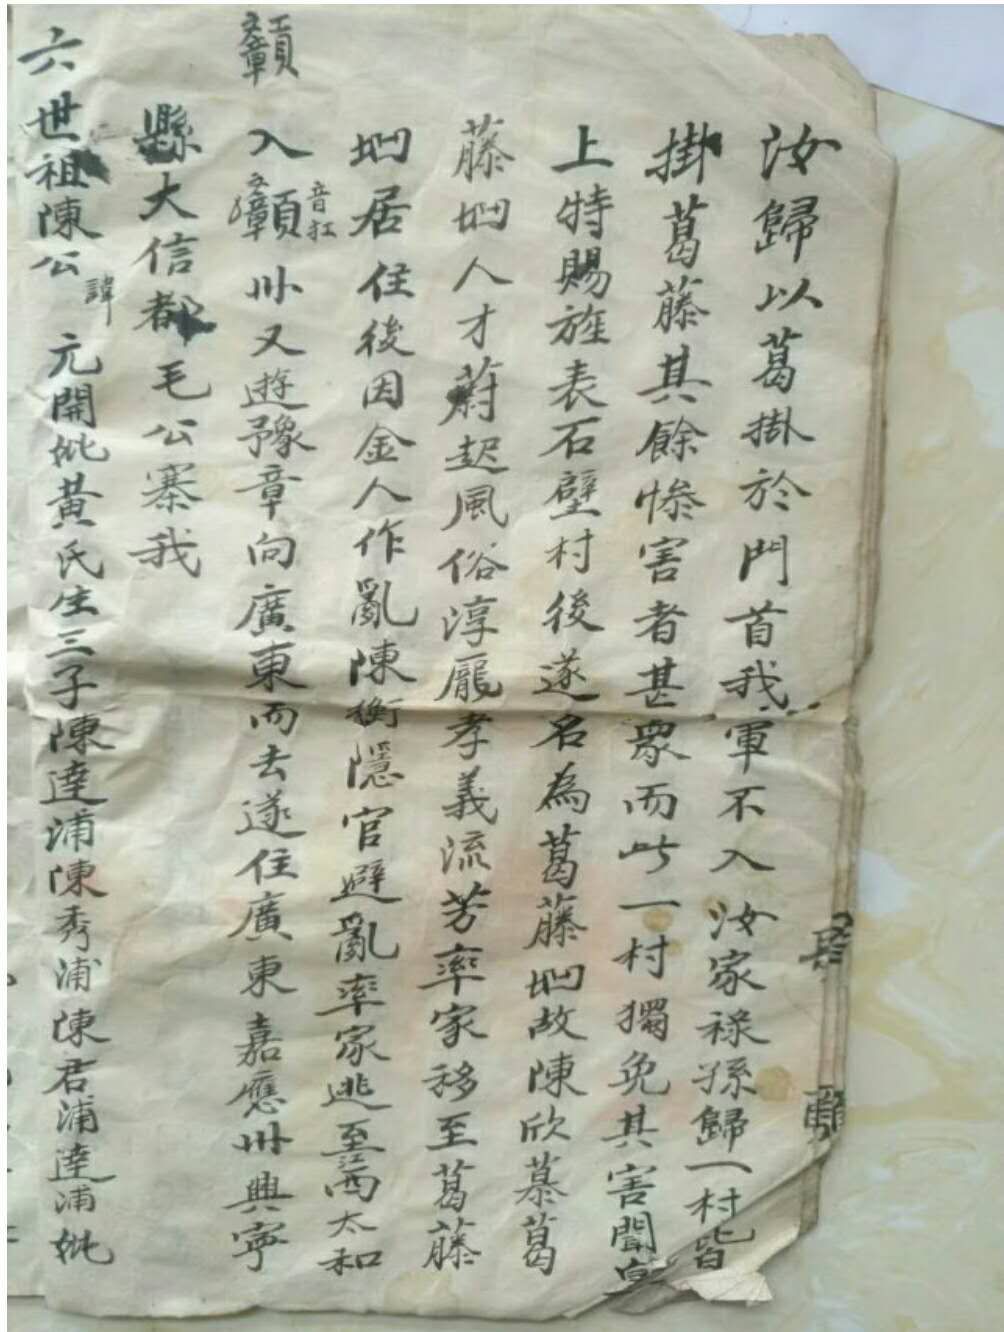 汝歸以葛掛於門首我軍不入汝家祿孫歸一村皆
掛葛藤其餘慘害者甚眾而此一村獨免其害聞皇
上特賜旌表石壁村後遂名為葛藤坳故陳欣慕葛
藤坳人才蔚起風俗淳龐孝義流芳率家移至葛藤
坳居住後因金人作亂陳衡隱官避亂率家逃至江西太和
入贑音扛州又遊豫章向廣東而去遂住廣東嘉應州興寧
贑
縣大信都毛公寨我
六世祖陳公諱元開妣黃氏生三子陳達浦陳秀浦陳君浦達浦妣